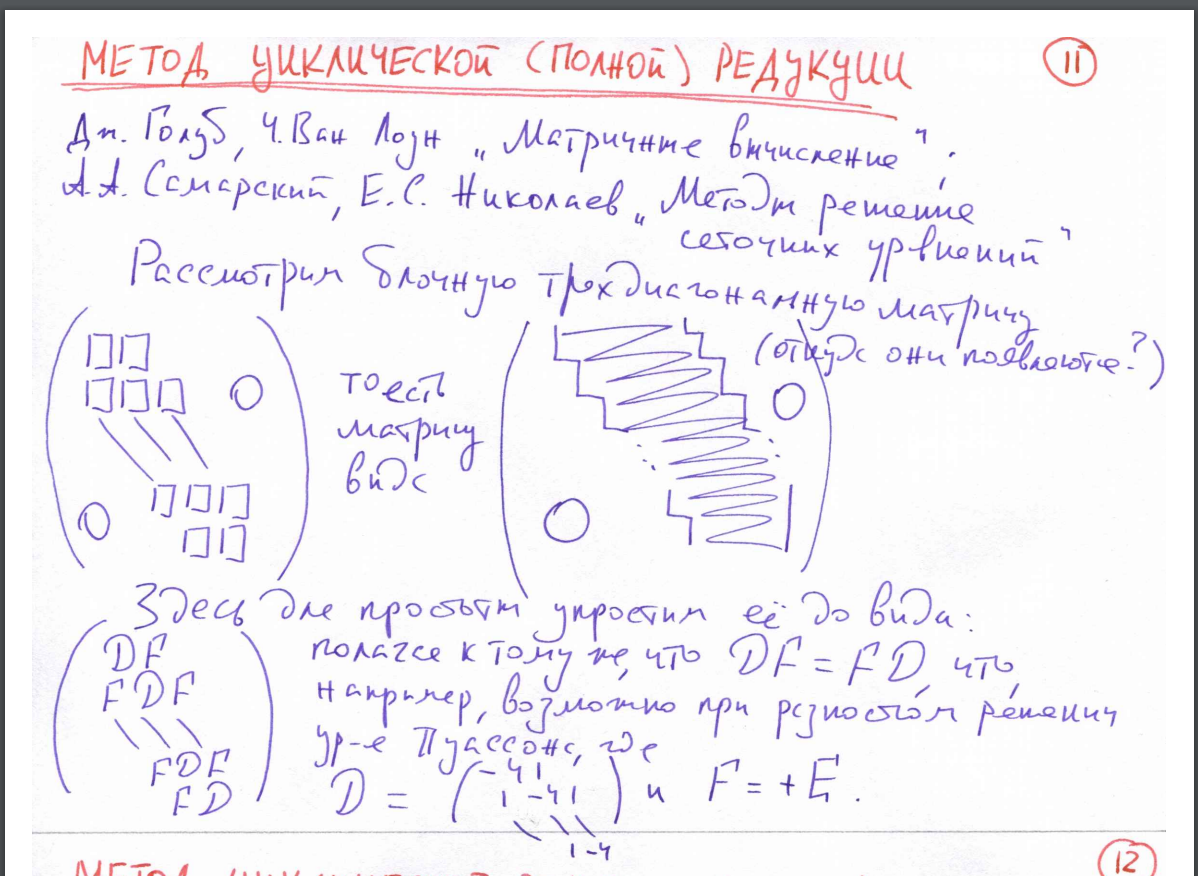 МЕТОД ЦИКЛИЧЕСКОЙ (ПОЛНОЙ) РЕДУКЦИИ
11
Дж. Голуб, Ч. Ван Лоун „Матричные вычисления“;
А.А. Самарский, Е.С. Николаев „Методы решения
сеточных урвнений“
Рассмотрим блочную трехдиагональную матрицу
(откуда они появляются?)
то есть
матрицу
вида
Здесь для простоты упростим её до вида:
D F
F D F
F D F
F D
полагая к тому же, что DF = FD, что,
например, возможно при разностом решении
ур-я Пуассона, где
D = ( -4 1
1 -4 1
1 -4 ) и F = + E.
12
МЕТОД